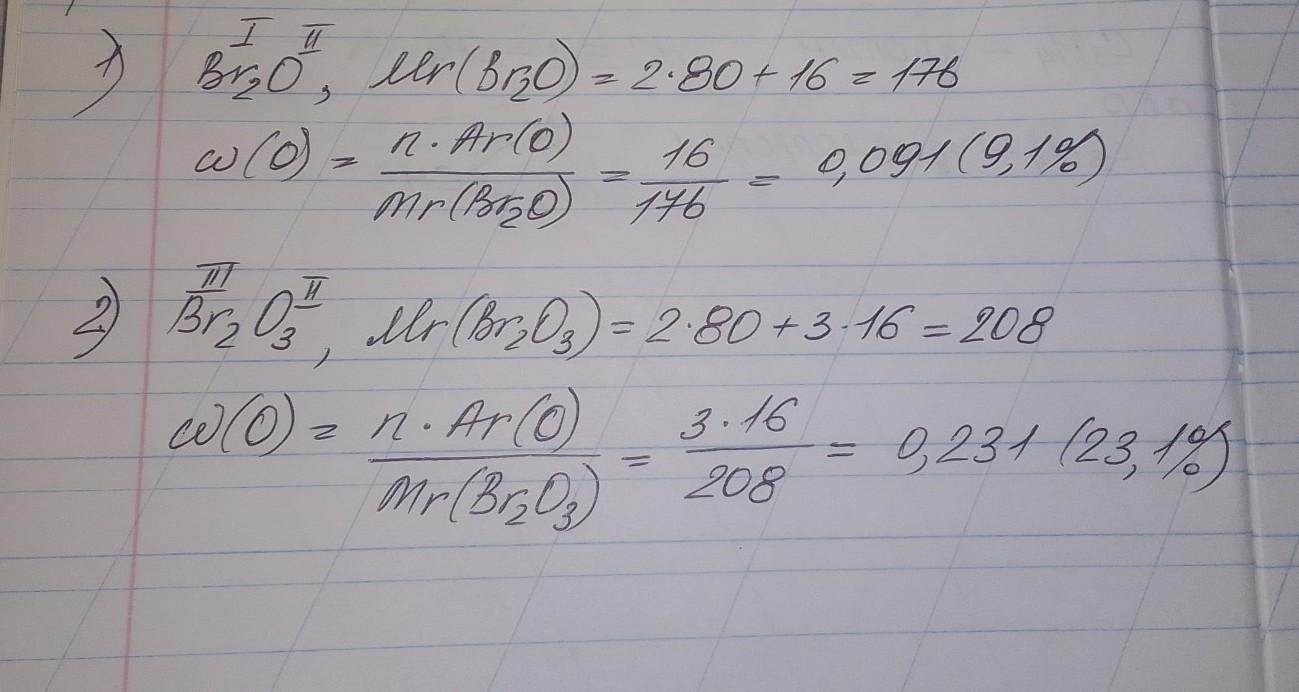 1) Br₂O, Mr(Br₂O) = 2·80 + 16 = 176
I II
ω(O) = n·Ar(O) / Mr(Br₂O) = 16 / 176 = 0,091 (9,1%)
III II
2) Br₂O₃, Mr(Br₂O₃) = 2·80 + 3·16 = 208
ω(O) = n·Ar(O) / Mr(Br₂O₃) = 3·16 / 208 = 0,231 (23,1%)